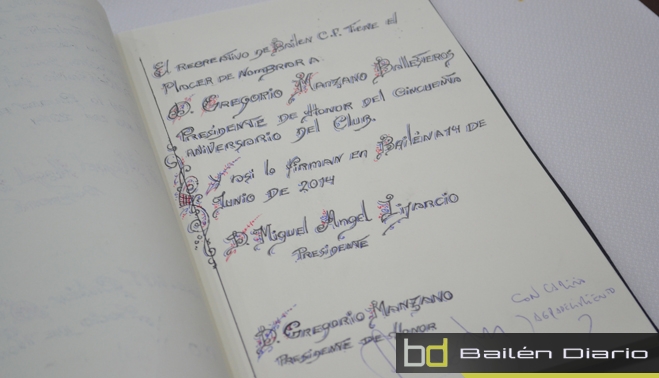 El Recreativo de Bailén C.F. Tiene el
Placer de Nombrar a
D. Gregorio Manzano Ballesteros
Presidente de Honor del Cincuenta
aniversario del Club.
Y asi lo firman en Bailén a 14 de
Junio de 2014
D. Miguel Angel Linarcio
Presidente
D. Gregorio Manzano
Presidente de Honor
CON CARIÑO
AGRADECIMIENTO
bd Bailén Diario